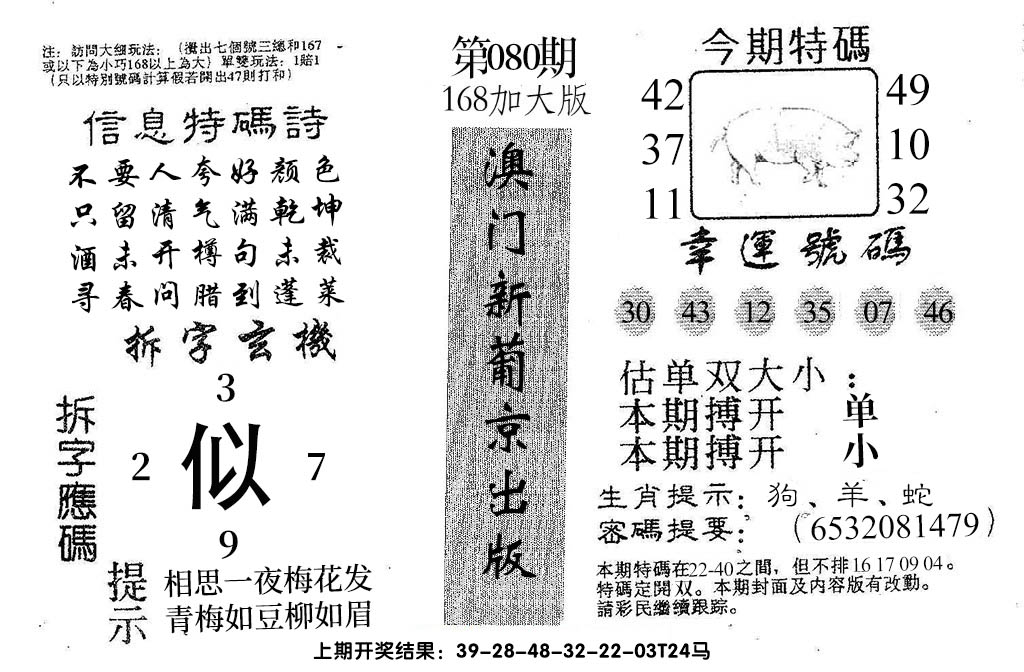 注：訪問大細玩法：（攪出七個號三總和167
或以下為小巧168以上為大）單雙玩法：1賠1
（只以特別號碼計算假若開出47則打和）
信息特碼詩
不要人夸好颜色
只留清气满乾坤
酒未开樽句未裁
寻春问腊到蓬莱
拆字玄機
3
2 似 7
9
拆字應碼
提示
相思一夜梅花发
青梅如豆柳如眉
第080期
168加大版
澳门新葡京出版
今期特碼
42 49
37 10
11 32
幸運號碼
30 43 12 35 07 46
估单双大小：
本期搏开 单
本期搏开 小
生肖提示：狗、羊、蛇
密碼提要：（6532081479）
本期特碼在22-40之間，但不排16 17 09 04。
特碼定開双。本期封面及内容版有改動。
請彩民繼續跟踪。
上期开奖结果：39-28-48-32-22-03T24马